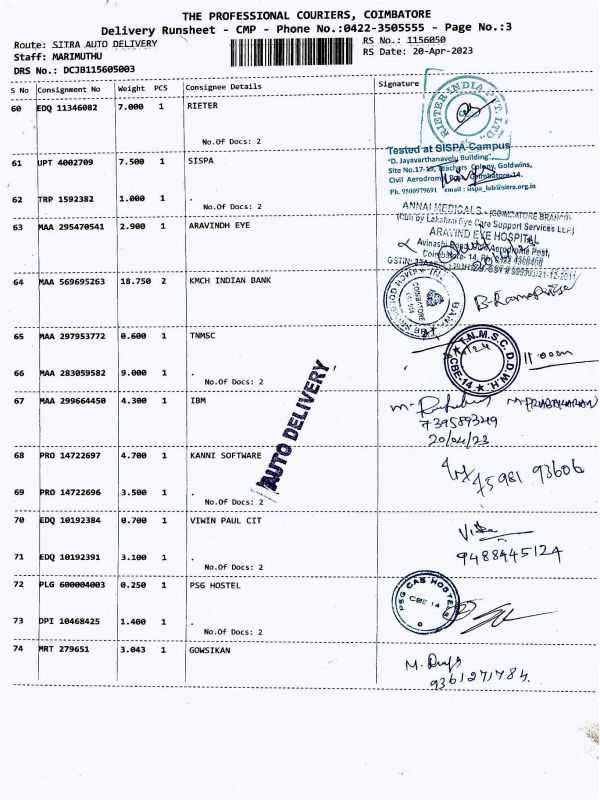 THE PROFESSIONAL COURIERS, COIMBATORE
Delivery Runsheet - CMP - Phone No.:0422-3505555 - Page No.:3
Route: SITRA AUTO DELIVERY
RS No.: 1156050
Staff: MARIMUTHU
RS Date: 20-Apr-2023
DRS No.: DCJB115605003
S No Consignment No Weight PCS Consignee Details Signature
60 EDQ 11346082 7.000 1 RIETER
No.Of Docs: 2
RIETER INDIA PVT. LTD.
61 UPT 4002709 7.500 1 SISPA
Tested at SISPA Campus
"D. Jayavarthanavelu Building"
Site No.17-19, Teachers Colony, Goldwins,
Civil Aerodrome Post, Coimbatore-14.
Ph. 9500979691 email: sispa_lab@sitra.org.in
62 TRP 1592382 1.000 1 .
No.Of Docs: 2
63 MAA 295470541 2.900 1 ARAVINDH EYE
ANNAI MEDICALS - (COIMBATORE BRANCH)
(Run by Lakshmi Eye Care Support Services LLP)
ARAVIND EYE HOSPITAL
Avinashi Road, Civil Aerodrome Post,
Coimbatore- 14, Ph:
64 MAA 569695263 18.750 2 KMCH INDIAN BANK
COIMBATORE
BANK
65 MAA 297953772 0.600 1 TNMSC
T.N.M.S.C. D.D.W.H.
CBE-14
66 MAA 283059582 9.000 1 .
No.Of Docs: 2
67 MAA 299664450 4.300 1 IBM
M. PRABAKARAN
739589349
20/04/23
AUTO DELIVERY
68 PRO 14722697 4.700 1 KANNI SOFTWARE
75981 93606
69 PRO 14722696 3.500 1 .
No.Of Docs: 2
70 EDQ 10192384 0.700 1 VIWIN PAUL CIT
9488445124
71 EDQ 10192391 3.100 1 .
No.Of Docs: 2
72 PLG 600004003 0.250 1 PSG HOSTEL
PSG CAS HOSTELS
CBE 14
73 DPI 10468425 1.400 1 .
No.Of Docs: 2
74 MRT 279651 3.043 1 GOWSIKAN
9361271784.